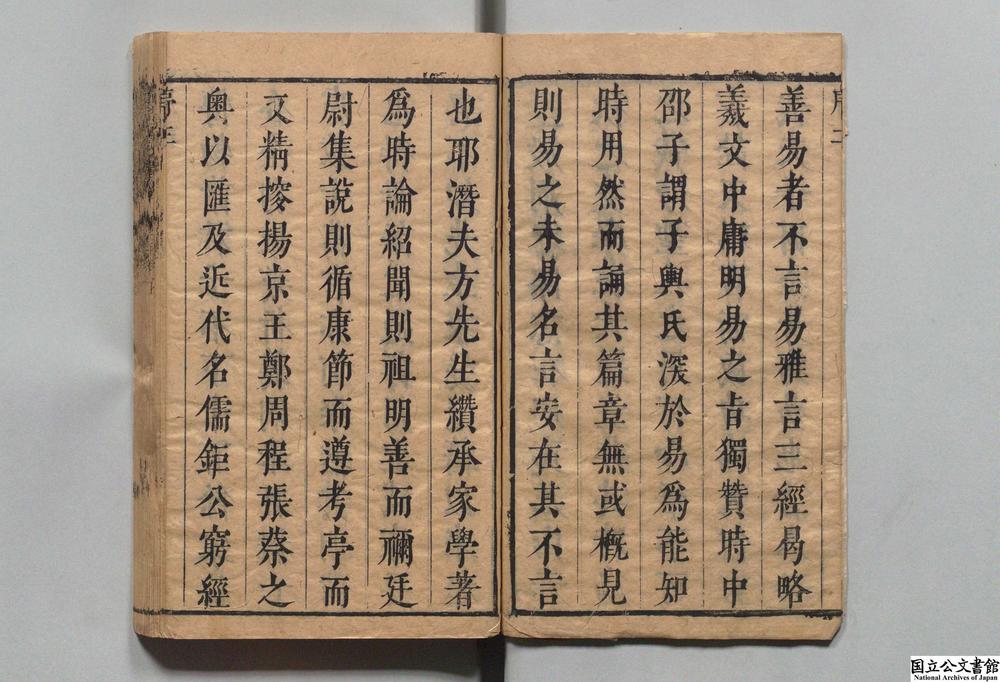 善易者不言易雅言三經曷略
羲文中庸明易之旨獨贊時中
邵子謂子輿氏深於易為能知
時用然而誦其篇章無或概見
則易之未易名言安在其不言
也耶潛夫方先生纘承家學著
為時論紹聞則祖明善而禰廷
尉集說則循康節而遵考亭而
又精揆揚京王鄭周程張蔡之
奧以匯及近代名儒鉅公窮經
序二
序三
国立公文書館
National Archives of Japan